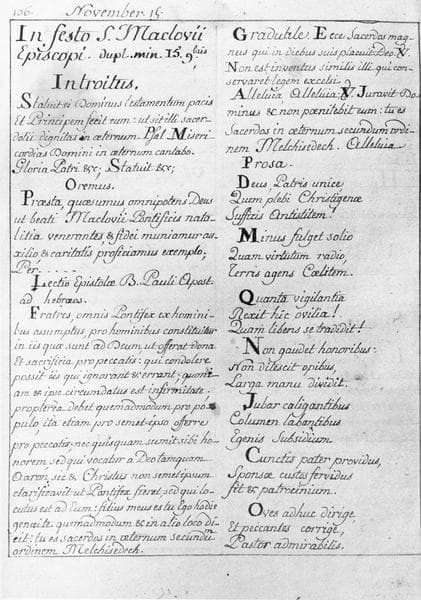 106. November 15.
In festo S. Maclovii
Episcopi. dupl. min. 15. 9bris
Introitus.
Statuit ei Dominus testamentum pacis
et Principem fecit eum: ut sit illi sacer-
dotii dignitas in æternum. Psal. Miseri-
cordias Domini in æternum cantabo.
Gloria Patri &c; Statuit &c;
Oremus.
Præsta, quæsumus omnipotens Deus
ut beati Maclovii Pontificis nata-
litia venerantes, & fidei muniamur au-
xilio & caritatis proficiamus exemplo;
Per
Lectio Epistolæ B. Pauli Apost.
ad hebræos.
Fratres, omnis Pontifex ex homini-
bus assumptus, pro hominibus constituitur
in iis quæ sunt ad Deum ut offerat dona
et sacrificia pro peccatis: qui condolere
possit iis qui ignorant & errant; quoni-
am & ipse circumdatus est infirmitate;
propterea debet quemadmodum pro po-
pulo ita etiam pro semet-ipso offerre
pro peccatis: nec quisquam sumit sibi ho-
norem sed qui vocatur a Deo tamquam
Aaron, sic & Christus non semetipsum
clarificavit ut Pontifex fieret, sed qui lo-
cutus est ad Eum: filius meus es tu Ego hodie
genui te quemadmodum & in alio loco di-
cit: tu es sacerdos in æternum secundum
ordinem Melchisedech.
Graduale. Ecce Sacerdos mag-
nus qui in diebus suis placuit Deo. V.
Non est inventus similis illi qui con-
servaret legem excelsi.
Alleluia, Alleluia. V. Juravit Do-
minus & non pœnitebit eum: tu es
Sacerdos in æternum secundum ordi-
nem Melchisedech. Alleluia
Prosa.
Deus Patris unice
Quam plebi Christigenæ
Sufficis Antistitem!
Minus fulget solio
Quam virtutum radio,
Terris agens Cœlitem.
Quanta vigilantia
Rexit hic ovilia!
Quam libens se tradidit!
Non gaudet honoribus:
Non ditescit opibus,
Larga manu dividit.
Jubar caligantibus
Columen labantibus
Egenis subsidium
Cunctis pater providus,
Sponsæ custos fervidus
fit & patrocinium.
Oves adhuc dirige,
Et peccantes corrige,
Pastor admirabilis.